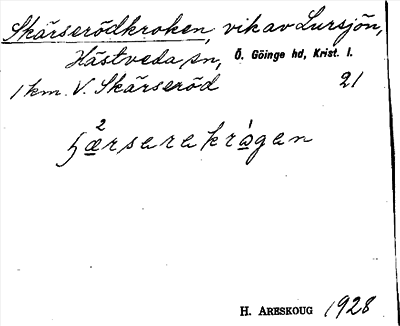 Skärserödkroken, vik av Lursjön,
Hästveda sn, Ö. Göinge hd, Krist. l.
1 km V. Skärseröd 21
2 1
ɧærsarakrågan
H. Areskoug 1928